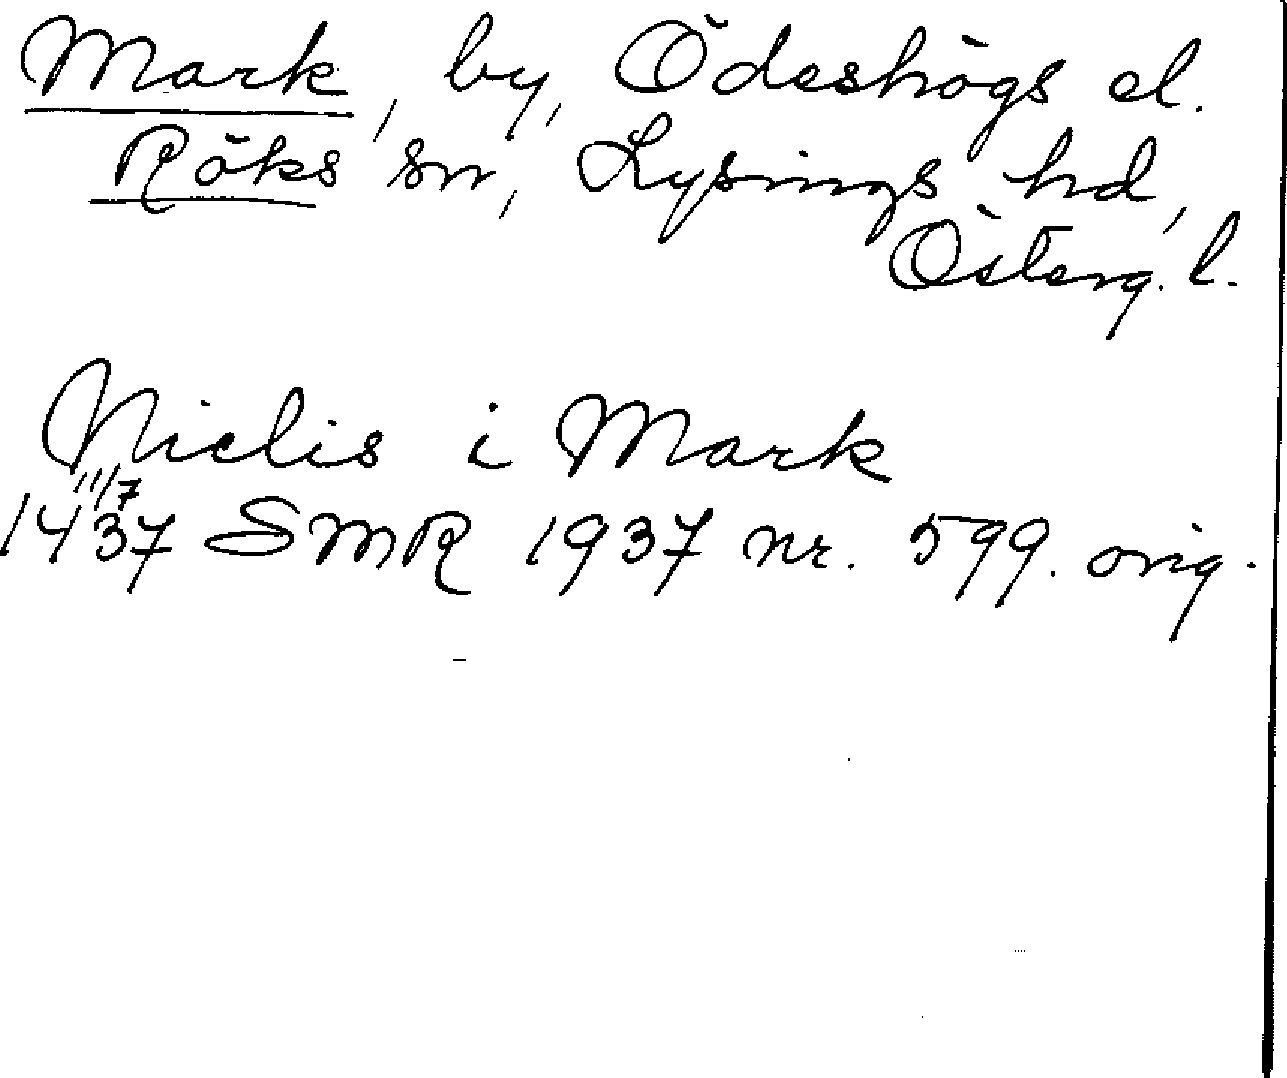 Mark, by, Ödeshögs el.
Röks sn, Lysings hd,
Österg. l.
Niclis i Mark
11/7
1437 SMR 1937 nr. 599. orig.